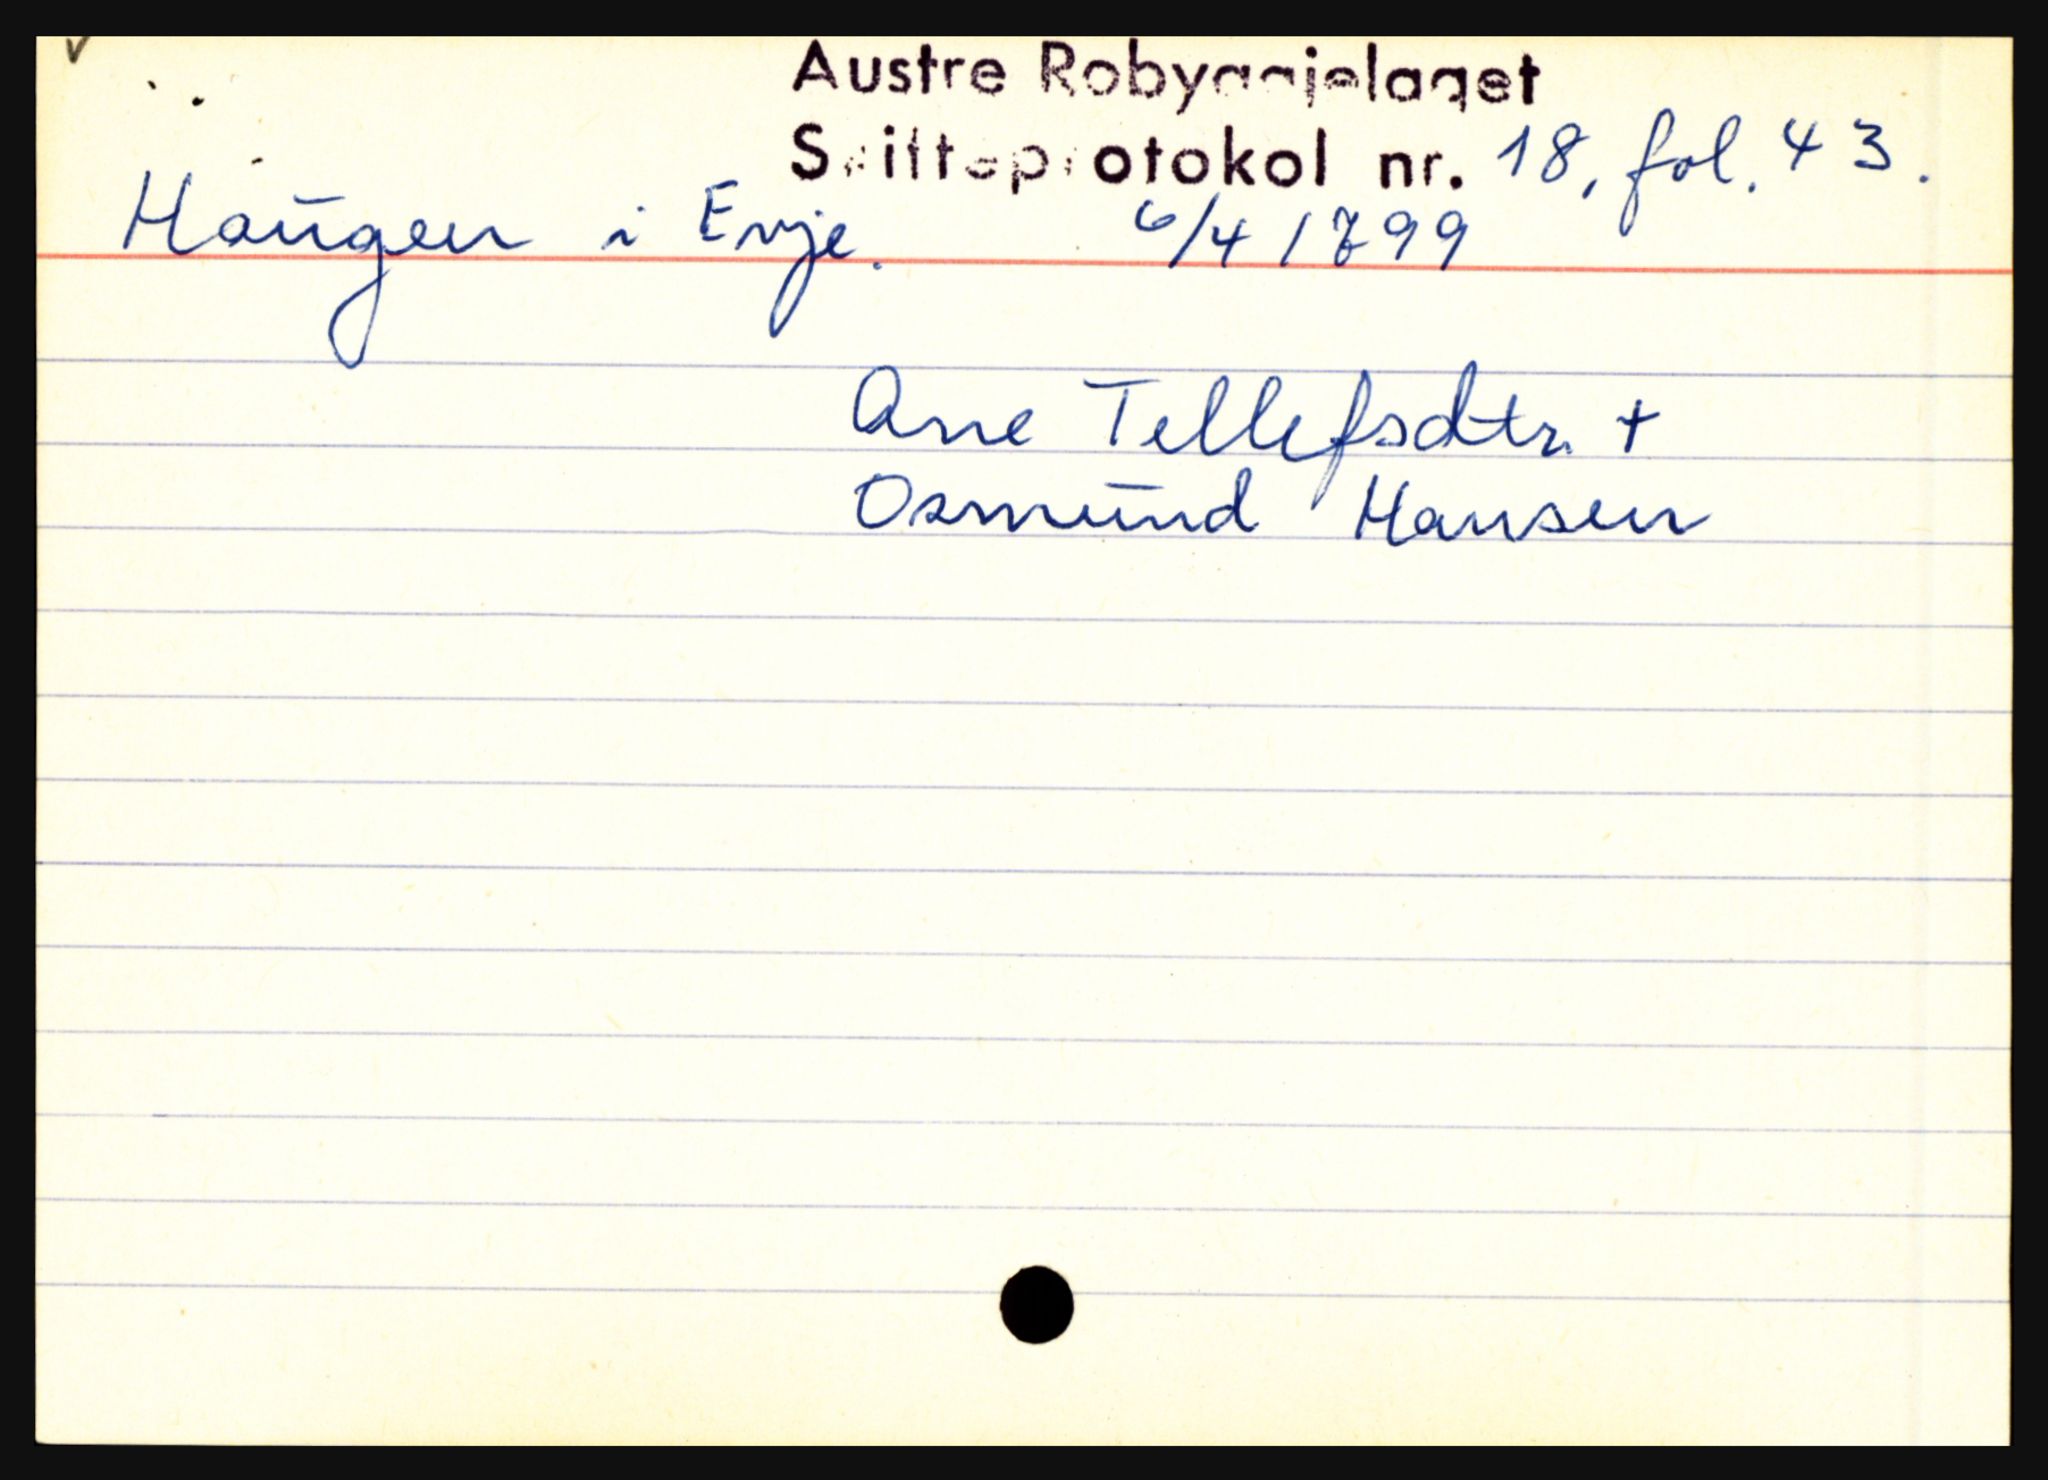 Austre Robyggjelaget
Skifteprotokol nr. 18, fol. 43.
Haugen i Evje. 6/4 1799
Ane Tellefsdtr. +
Osmund Hansen